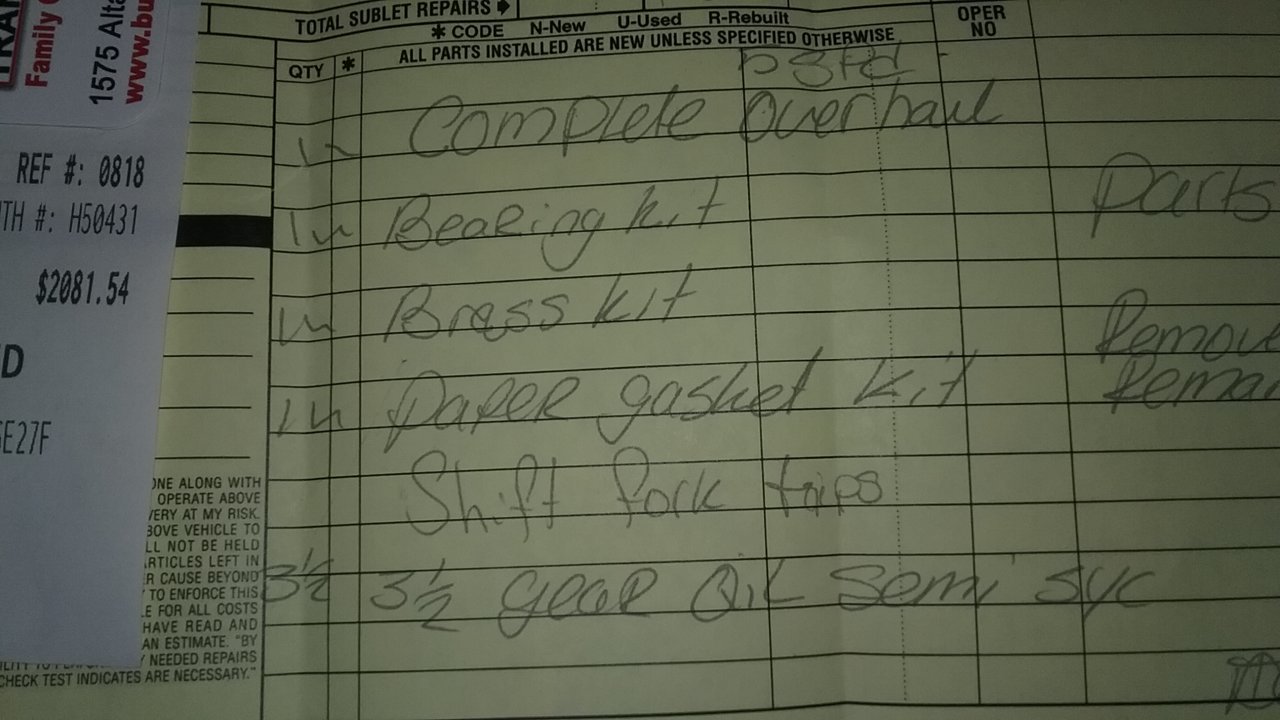 Family
1575 Alta
www.bu
REF #: 0818
TH #: H50431
$2081.54
D
E27F
TOTAL SUBLET REPAIRS
* CODE N-New U-Used R-Rebuilt
ALL PARTS INSTALLED ARE NEW UNLESS SPECIFIED OTHERWISE
QTY *
OPER
NO
Complete overhaul
1 n Bearing kit
Parts
1 n Brass kit
Remove
1 n Paper gasket kit
Reman
Shift fork
3 1/2 3 1/2 gear oil semi syc
ONE ALONG WITH
OPERATE ABOVE
VERY AT MY RISK.
BOVE VEHICLE TO
LL NOT BE HELD
ARTICLES LEFT IN
R CAUSE BEYOND
TO ENFORCE THIS
E FOR ALL COSTS
HAVE READ AND
AN ESTIMATE. "BY
NEEDED REPAIRS
CHECK TEST INDICATES ARE NECESSARY."